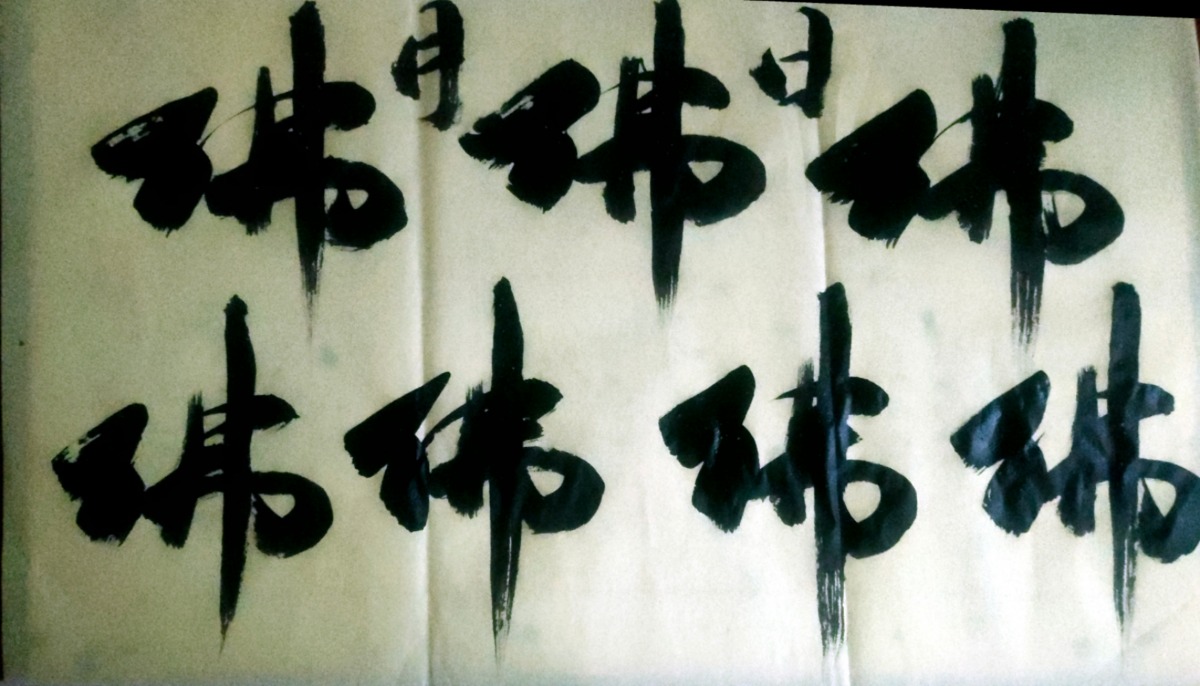 佛月佛日佛
佛佛佛佛